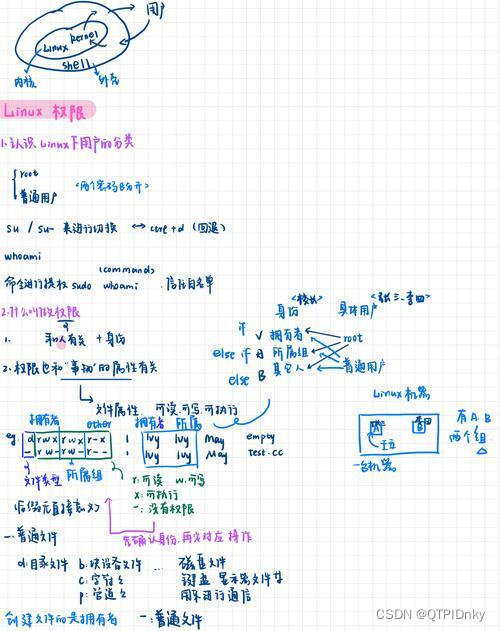 用户
Linux kernel
shell
内核 外壳
Linux 权限
1.认识 Linux下用户的分类
root
普通用户
<两个密码分开>
su / su- 来进行切换 ↔ ctrl+d (回退)
whoami
(command)
命令进行提权 sudo whoami 信任白名单
2.什么叫做权限
1. 和人有关 +身份
2.权限也和“事物”的属性有关
文件属性: 可读.可写.可执行
身份 具体用户 <张三.李四>
if 拥有者 root
else if 所属组
else 其它人 普通用户
Linux 机器
一台机器
有 A.B
两个组.
拥有者 other 拥有者 所属
eg. d rwx rwx r-x 1 lvy lvy May empty
- rw- rw- r-- 1 lvy lvy May test.cc
文件类型 所属组
r:可读 w:可写
x:可执行
-:没有权限
先确认身份,再实对应操作
-:普通文件
d:目录文件 b.块设备文件 ... 磁盘文件
c:字符 键盘.显示器文件
p:管道 用来进行通信
创建文件的是拥有者 -:普通文件
CSDN @QTPIDnky